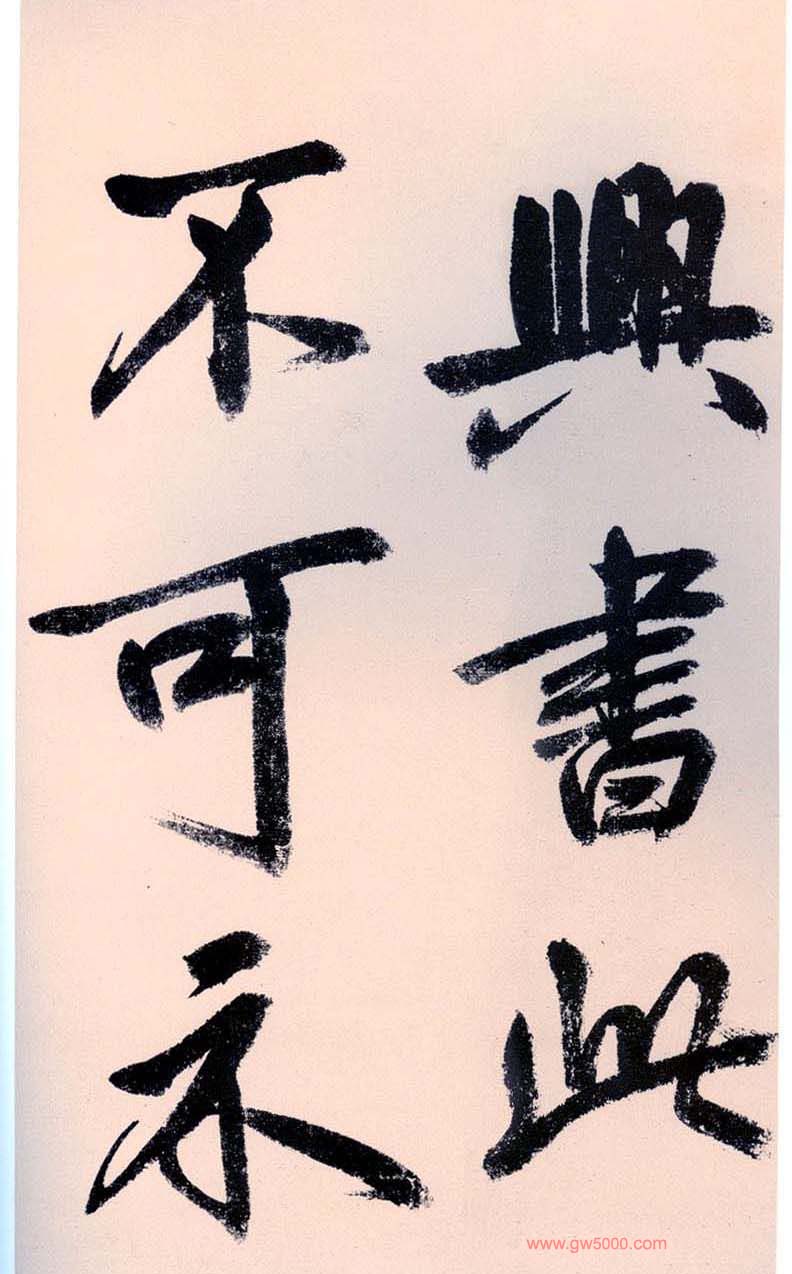 興書此
不可示
www.gw5000.com